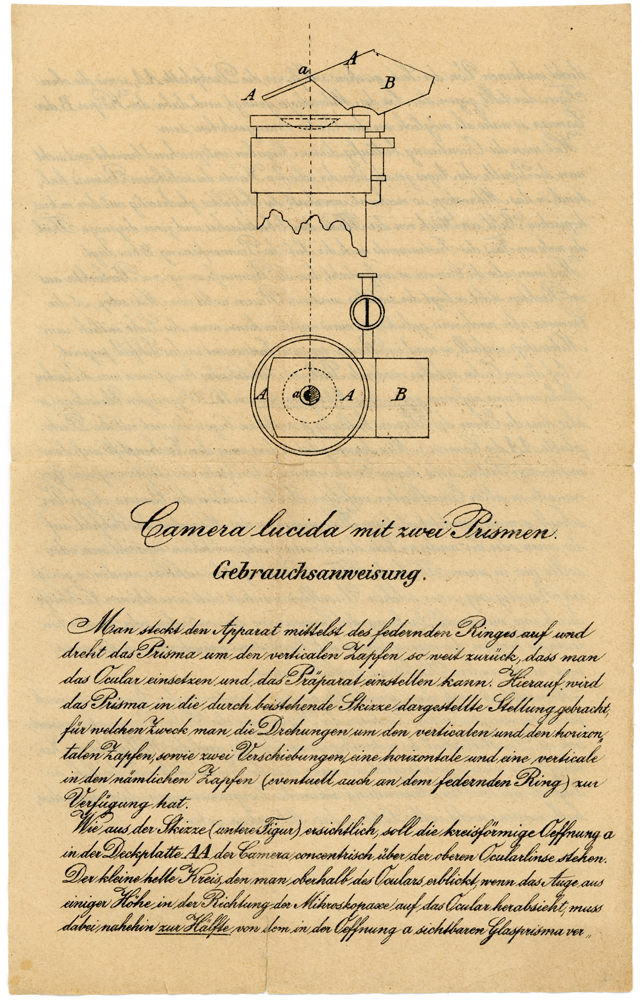 a
A
A
B
A
a
A
B
Camera lucida mit zwei Prismen.
Gebrauchsanweisung.
Man steckt den Apparat mittelst des federnden Ringes auf und
dreht das Prisma um den verticalen Zapfen so weit zurück, dass man
das Ocular einsetzen und das Präparat einstellen kann. Hierauf wird
das Prisma in die durch beistehende Skizze dargestellte Stellung gebracht,
für welchen Zweck man die Drehungen um den verticalen und den horizon,
talen Zapfen, sowie zwei Verschiebungen, eine horizontale und eine verticale
in den nämlichen Zapfen (eventuell auch an dem federnden Ring) zur
Verfügung hat.
Wie aus der Skizze (untere Figur) ersichtlich, soll die kreisförmige Oeffnung a
in der Deckplatte AA der Camera concentrisch über der oberen Ocularlinse stehen.
Der kleine helle Kreis, den man oberhalb des Oculars erblickt, wenn das Auge aus
einiger Höhe in der Richtung der Mikroskopaxe auf das Ocular herabsieht, muss
dabei nahehin zur Hälfte von dem in der Oeffnung a sichtbaren Glasprisma ver..